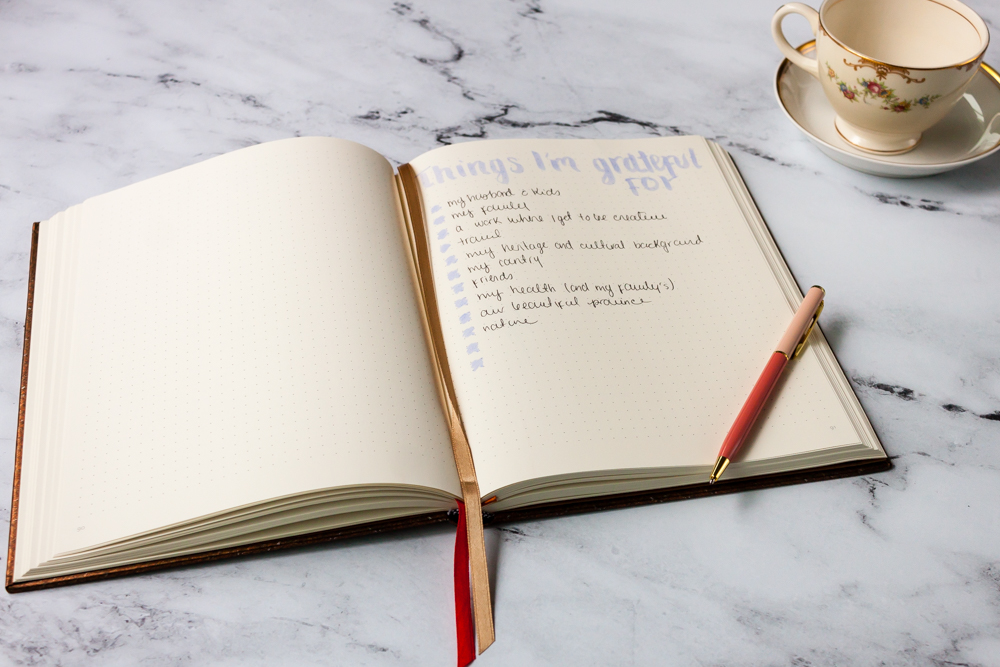 things I'm grateful
FOR
my husband & kids
my family
a work where i get to be creative
travel
my heritage and cultural background
my country
friends
my health (and my family's)
our beautiful province
nature